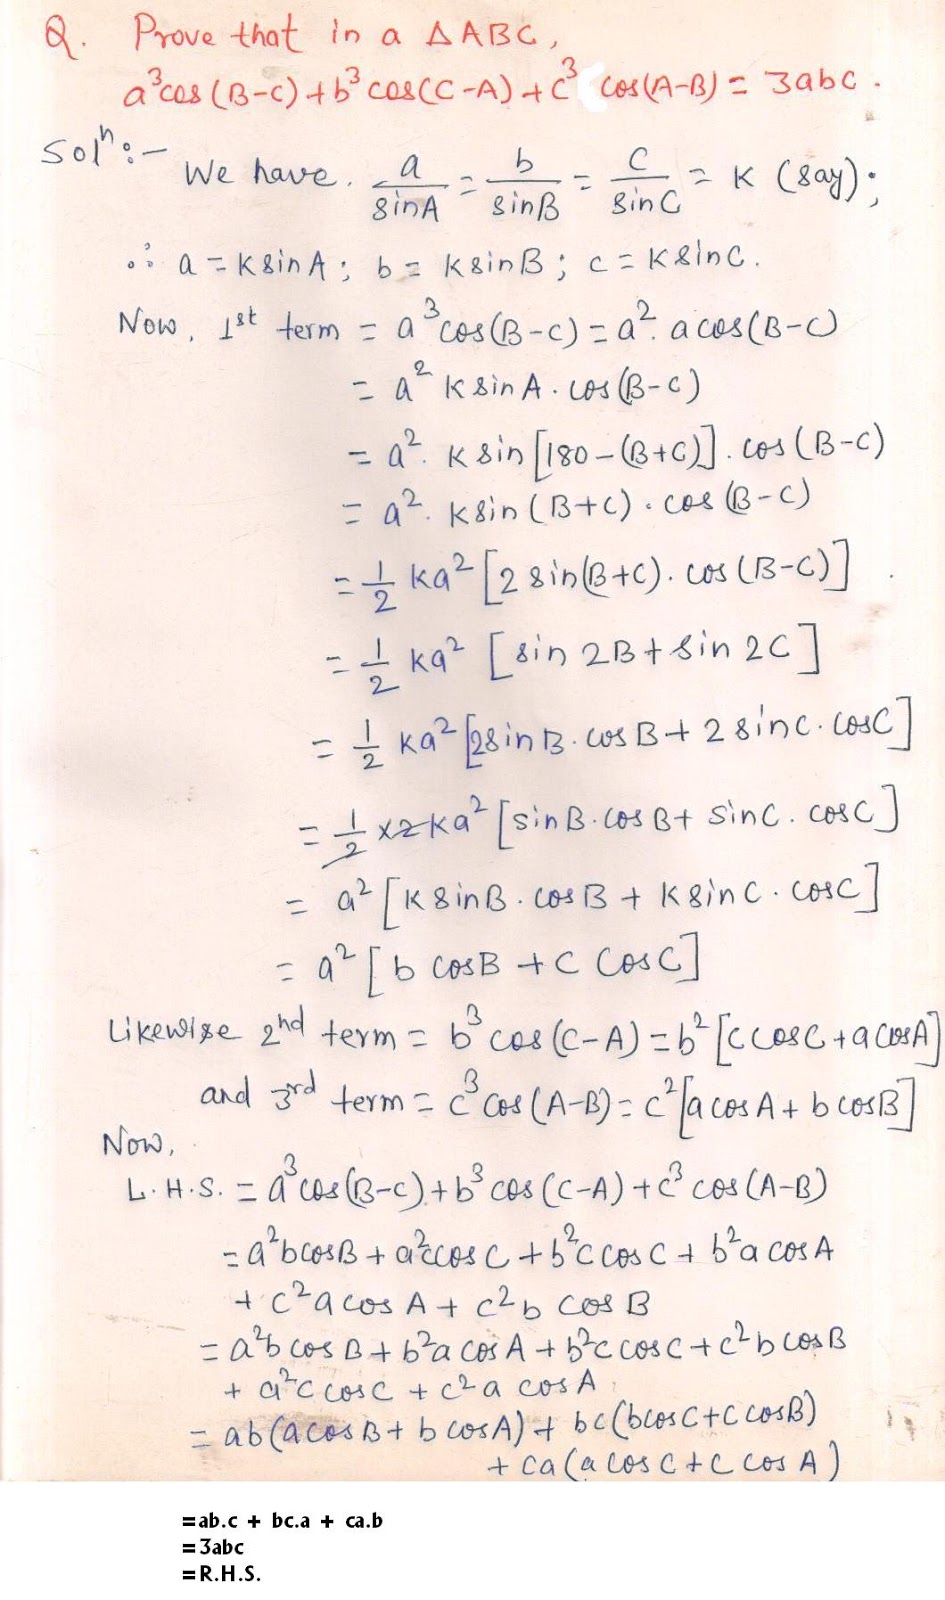 Q. Prove that in a △ABC,
a³cos(B-C)+b³cos(C-A)+c³ cos(A-B) = 3abc.
Solⁿ:-
We have. a/sinA = b/sinB = c/sinC = K (say);
∴ a = K sinA ; b = K sinB ; c = K sinC.
Now, 1st term = a³cos(B-C) = a². a cos(B-C)
= a² K sinA . cos(B-C)
= a². K sin[180-(B+C)]. cos(B-C)
= a². K sin(B+C) . cos(B-C)
= 1/2 Ka² [2 sin(B+C). cos(B-C)]
= 1/2 Ka² [sin 2B + sin 2C]
= 1/2 Ka² [2 sin B. cos B + 2 sin C. cosC]
= 1/2 x2 Ka² [sin B. cos B + sin C. cosC]
= a² [K sinB . cosB + K sin C . cosC]
= a² [b cosB + c cosC]
Likewise 2nd term = b³ cos(C-A) = b² [c cosC + a cosA]
and 3rd term = c³ cos(A-B) = c² [a cosA + b cosB]
Now,
L.H.S. = a³ cos(B-C) + b³ cos(C-A) + c³ cos(A-B)
= a²b cosB + a²c cosC + b²c cosC + b²a cosA
+ c²a cosA + c²b cosB
= a²b cosB + b²a cosA + b²c cosC + c²b cosB
+ a²c cosC + c²a cosA
= ab(a cosB + b cosA) + bc(b cosC + c cosB)
+ ca(a cosC + c cosA)
=ab.c + bc.a + ca.b
=3abc
=R.H.S.